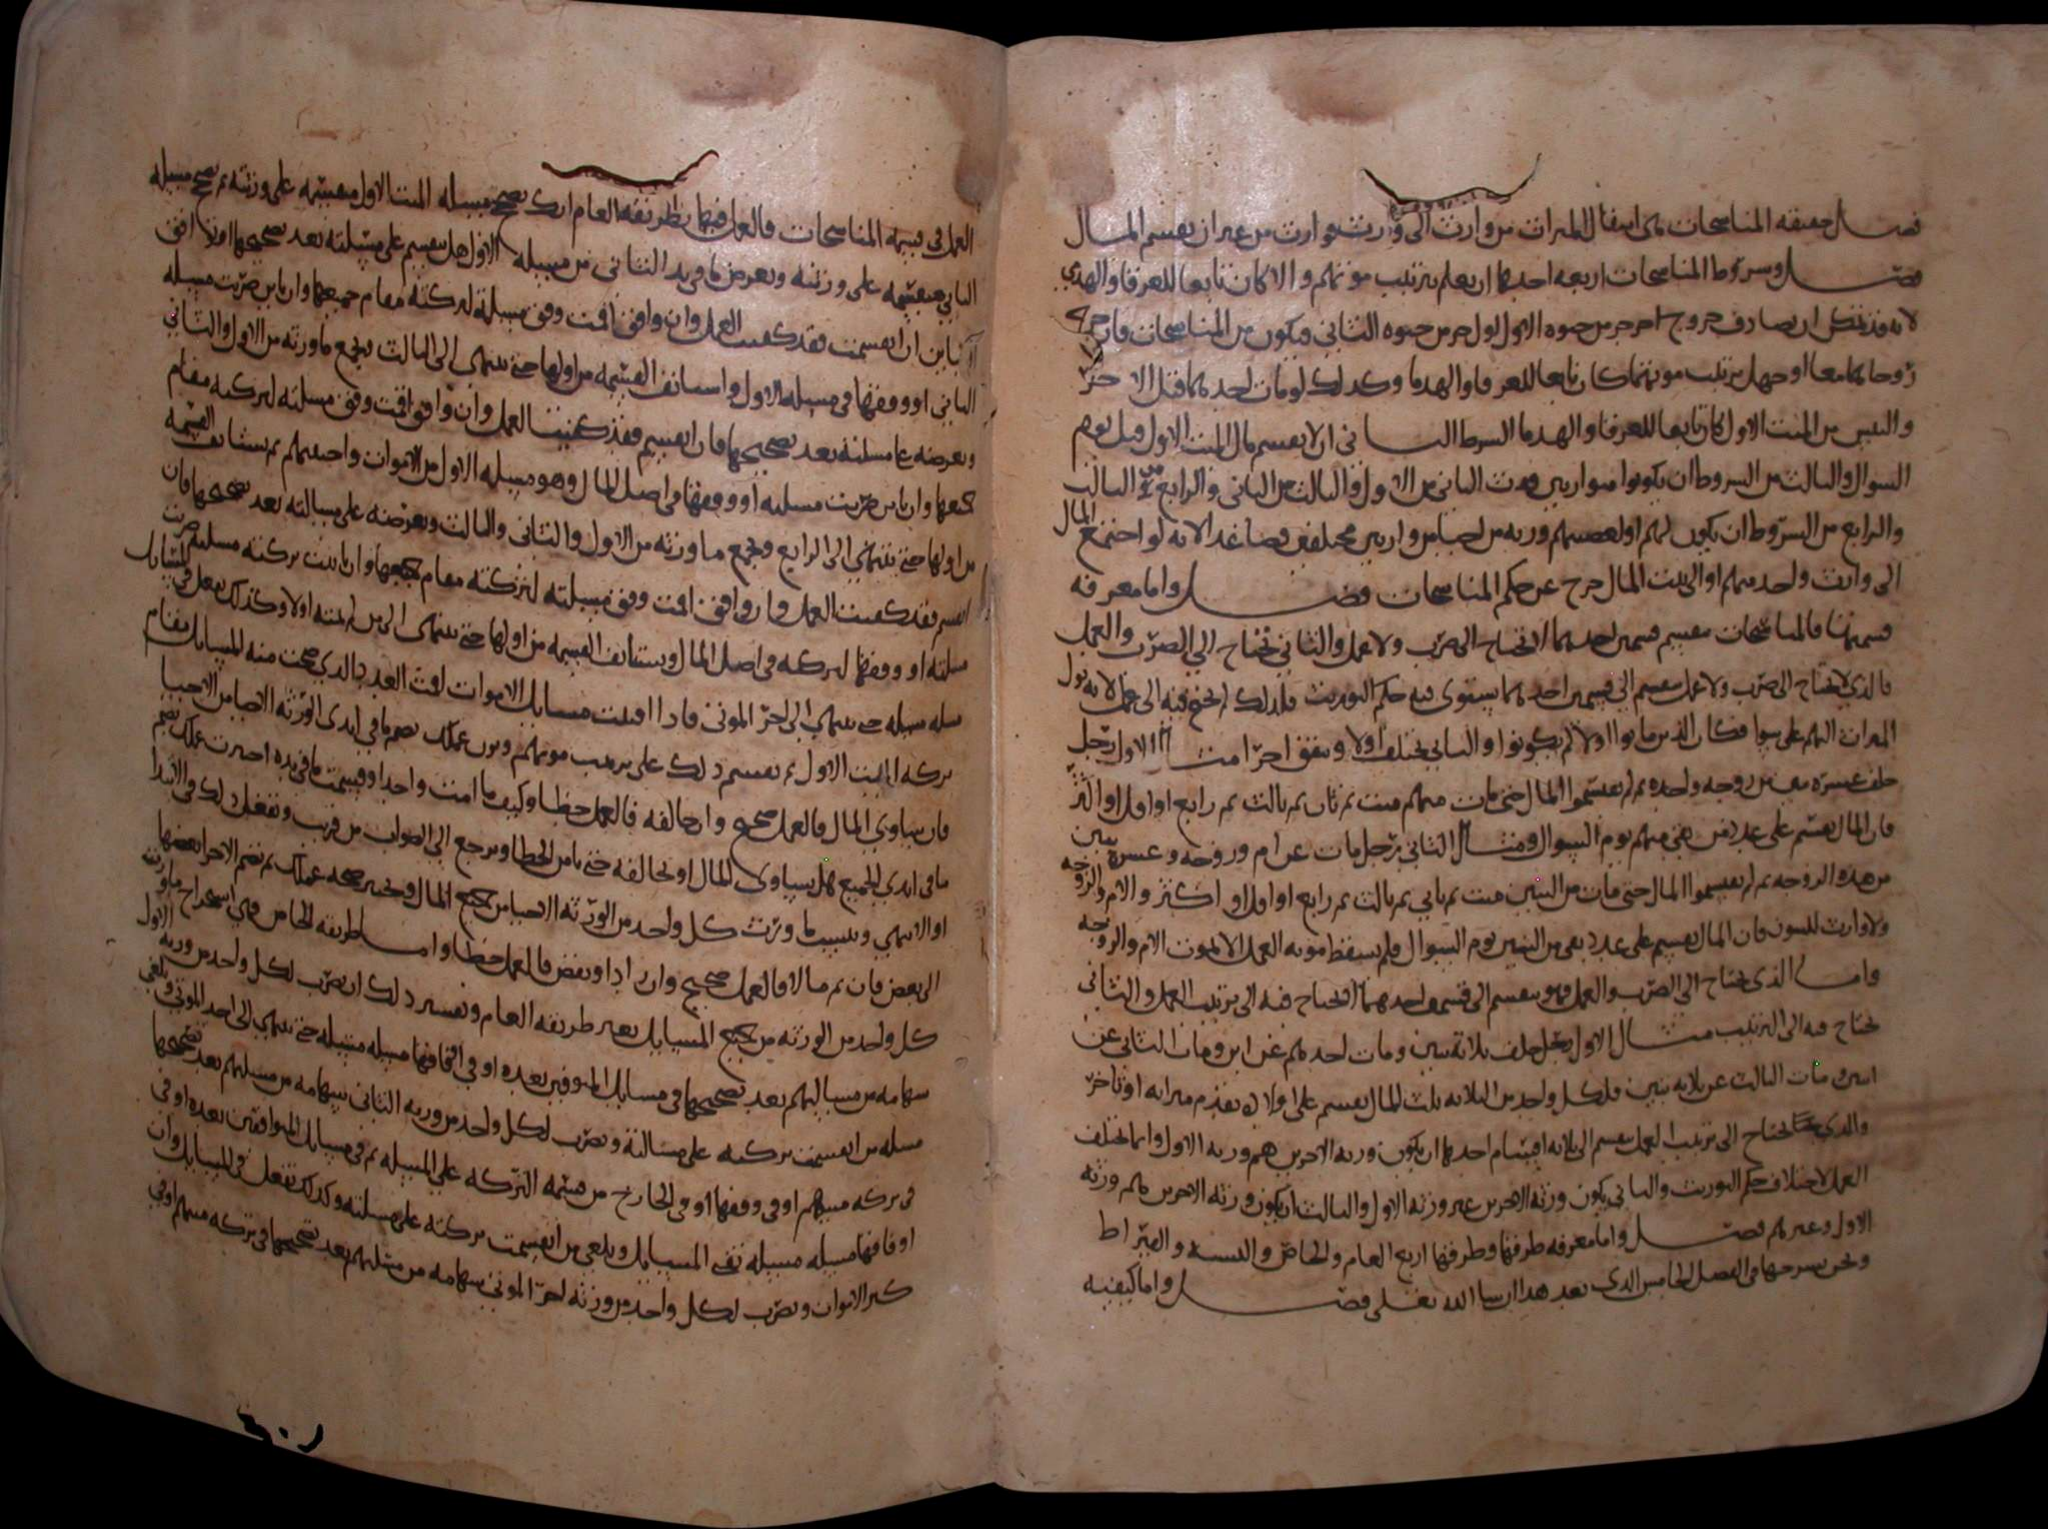 فصل حقيقه المناسخات هى انتقال الميراث من وارث الى وارث بتوارث من غير ان يقسم المال
فصل وشروط المناسخات اربعه احدها ان يعلم بترتيب موتهم والا كان تابعا للغرقا والهدمى
لانه قد يمكن ان يصادف خروج اخر جز من حيوه الاول اول جز من حيوه الثانى فيكون من المناسخات فان خرجت
روحاهما معا او جهل ترتيب موتهما كان تابعا للغرقا والهدما وكذلك لو مات احدهما قبل الاخر
والتبس من الميت الاول كان تابعا للغرقا والهدما الشرط الثانى ان لا يقسم مال الميت الاول قبل يوم
السوال والثالث من الشروط ان يكونوا متوارثين فيرث الثانى من الاول والثالث من الثانى والرابع من الثالث
والرابع من الشروط ان يكون لهم او لبعضهم ورثه من احيا من وارثين مختلفين فصاعدا لانه لو اجتمع المال
الى وارث واحد منهم او الى بيت المال خرج عن حكم المناسخات فصل واما معرفه
قسمتها فالمناسخات تنقسم قسمين احدهما لا تحتاج الى ضرب ولا عمل والثانى تحتاج الى الضرب والعمل
فالذى لا تحتاج الى ضرب ولا عمل تنقسم الى قسمين احدهما يستوى فيه حكم التوريث فلذلك لم يحتج فيه الى عمل لانه يول
الميراث اليهم على سوا فكان الذين ماتوا اولا لم يكونوا والثانى يختلف اولا ويتفق اخرا مثال الاول رجل
خلف عشره بنين من زوجه واحده ثم لم يقسموا المال حتى مات منهم ميت ثم ثان ثم ثالث ثم رابع او اقل او اكثر
فان المال يقسم على عدد من بقى منهم يوم السوال ومثال الثانى رجل مات عن ام وزوجه وعشره بنين
من هذه الزوجه ثم لم يقسموا المال حتى مات من البنين ميت ثم ثانى ثم ثالث ثم رابع او اقل او اكثر والام والزوجه
ولا وارث للبنون فان المال يقسم على عدد من بقى من البنين يوم السوال فلم يسقط موته العمل الا لموت الام والزوجه
واما الذى تحتاج الى الضرب والعمل فهو ينقسم الى قسمين احدهما لا تحتاج فيه الى ترتيب العمل والثانى
تحتاج فيه الى الترتيب مثال الاول رجل خلف ثلاثة بنين ومات احدهم عن ابن ومات الثانى عن
ابنين ومات الثالث عن ثلاثه بنين فلكل واحد من الثلاثه ثلث المال يقسم على اولاده تقدم ميراثه او تاخر
والذى تحتاج الى ترتيب العمل ينقسم الى ثلاثه اقسام احدها ان يكون ورثه الاخرين هم ورثه الاول وانما تختلف
العمل لاختلاف حكم التوريث والثانى يكون ورثه الاخرين غير ورثه الاول والثالث ان يكون ورثه الاخرين هم ورثه
الاول وغيرهم فصل واما معرفه طرقها وطرقها اربع العام والخاص والنسبه والقيراط
ونحن نشرحها فى الفصل الخامس الذى بعد هذا ان شا الله تعلى فصل واما كيفيه
العمل فى قسمة المناسخات فالعمل فيها بطريقه العام انك تصحح مسيله الميت الاول وتقسمه على ورثته ثم تصحح مسيله
الثانى فتقسمه على ورثته وتعرض ما فى يد الثانى من مسيله الاول هل ينقسم على مسيلته بعد تصحيحها او توافق
او تباين ان انقسمت فقد كفيت العمل وان وافق اقمت وفق مسيلته لتركته مقام جميعها وان باين ضربت مسيله
الثانى او وفقها فى مسيله الاول واستانف القسمه من اولها حتى تنتهى الى الثالث تجمع ما ورثه من الاول والثانى
وتعرضه على مسلته بعد تصحيحها فان انقسم فقد كفيت العمل وان وافق اقمت وفق مسلته لتركته مقام
جميعها وان باين ضربت مسيلته او وفقها فى اصل المال وهو مسيله الاول من الاموات واجمعهم ثم يستانف القسمه
من اولها حتى تنتهى الى الرابع وتجمع ما ورثه من الاول والثانى والثالث وتعرضه على مسالته بعد تصحيحها فان
انقسم فقد كفيت العمل وان وافق اقمت وفق مسيلته لتركته مقام جميعها وان باينت تركته مسلته ضربت
مسلته او وفقها لتركته فى اصل المال ويستانف القسمه من اولها حتى تنتهى الى من امته اولا وكذلك تفعل فى المسايل
مسله مسيله حتى تنتهى الى اخر الموتى فاذا اقمت مسايل الاموات اقمت العدد الذى صحت منه المسايل مقام
تركه الميت الاول ثم تقسم ذلك على ترتيب موتهم ويزن عملك بضم ما فى ايدى الورثه الاحيا من الاحيا
فان يساوى المال فالعمل صحيح وان خالفه فالعمل خطا وكيف ما امت واحدا وقسمت ما فى يده اخبرت عملك بضم
ما فى ايدى الجميع هل يساوى المال او تخالفه حتى تامن الخطا وترجع الى الصواب من قريب وتفعل ذلك فى الابتدا
او الانتهى وتنسب ما ورث كل واحد من الورثه الاحيا من جميع المال وتختبر صحه عملك ثم تضم الاجزا بعضها
الى بعض فان تم مالا فالعمل صحيح وان زاد او نقص فالعمل خطا واما طريقه الخاص فهى استخراج ما ورثه
كل واحد من الورثه من جميع المسايل بغير طريقه العام وتفسير ذلك ان تضرب لكل واحد من ورثه الاول
سهامه من مسيلتهم بعد تصحيحها فى مسايل المتوفين بعده او فى اوفاقها مسيله مسيله حتى تنتهى الى احد الموتى وتلغى
مسله من انقسمت تركته على مسالته وتضرب لكل واحد من ورثه الثانى سهامه من مسيلتهم بعد تصحيحها
فى تركه ميتهم او فى وفقها او فى الخارج من قسمه التركه على المسيله ثم فى مسايل المتوافين بعده او فى
اوفاقها مسيله مسيله تفنى المسايل وتلغى من انقسمت تركته على مسلته وكذلك تفعل فى المسايل وان
كثر الاموات وتضرب لكل واحد من ورثه اخر الموتى سهامه من مسئلتهم بعد تصحيحها فى تركه ميتهم او فى